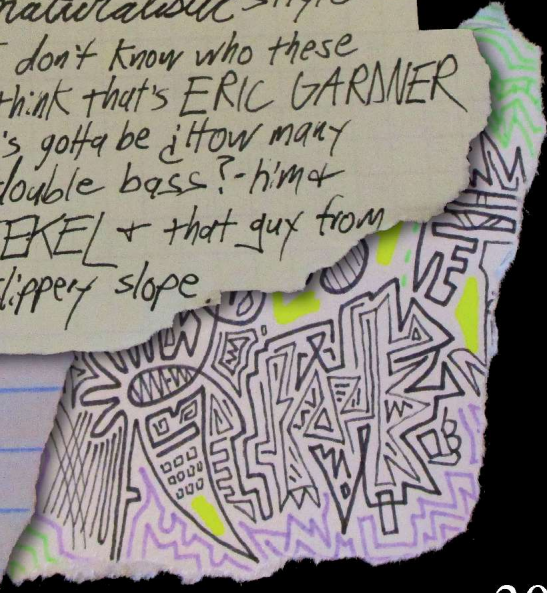 naturalistic style
don't know who these
think that's ERIC GARDNER
's gotta be ¿How many
double bass?-him &
EKEL & that guy from
slippery slope